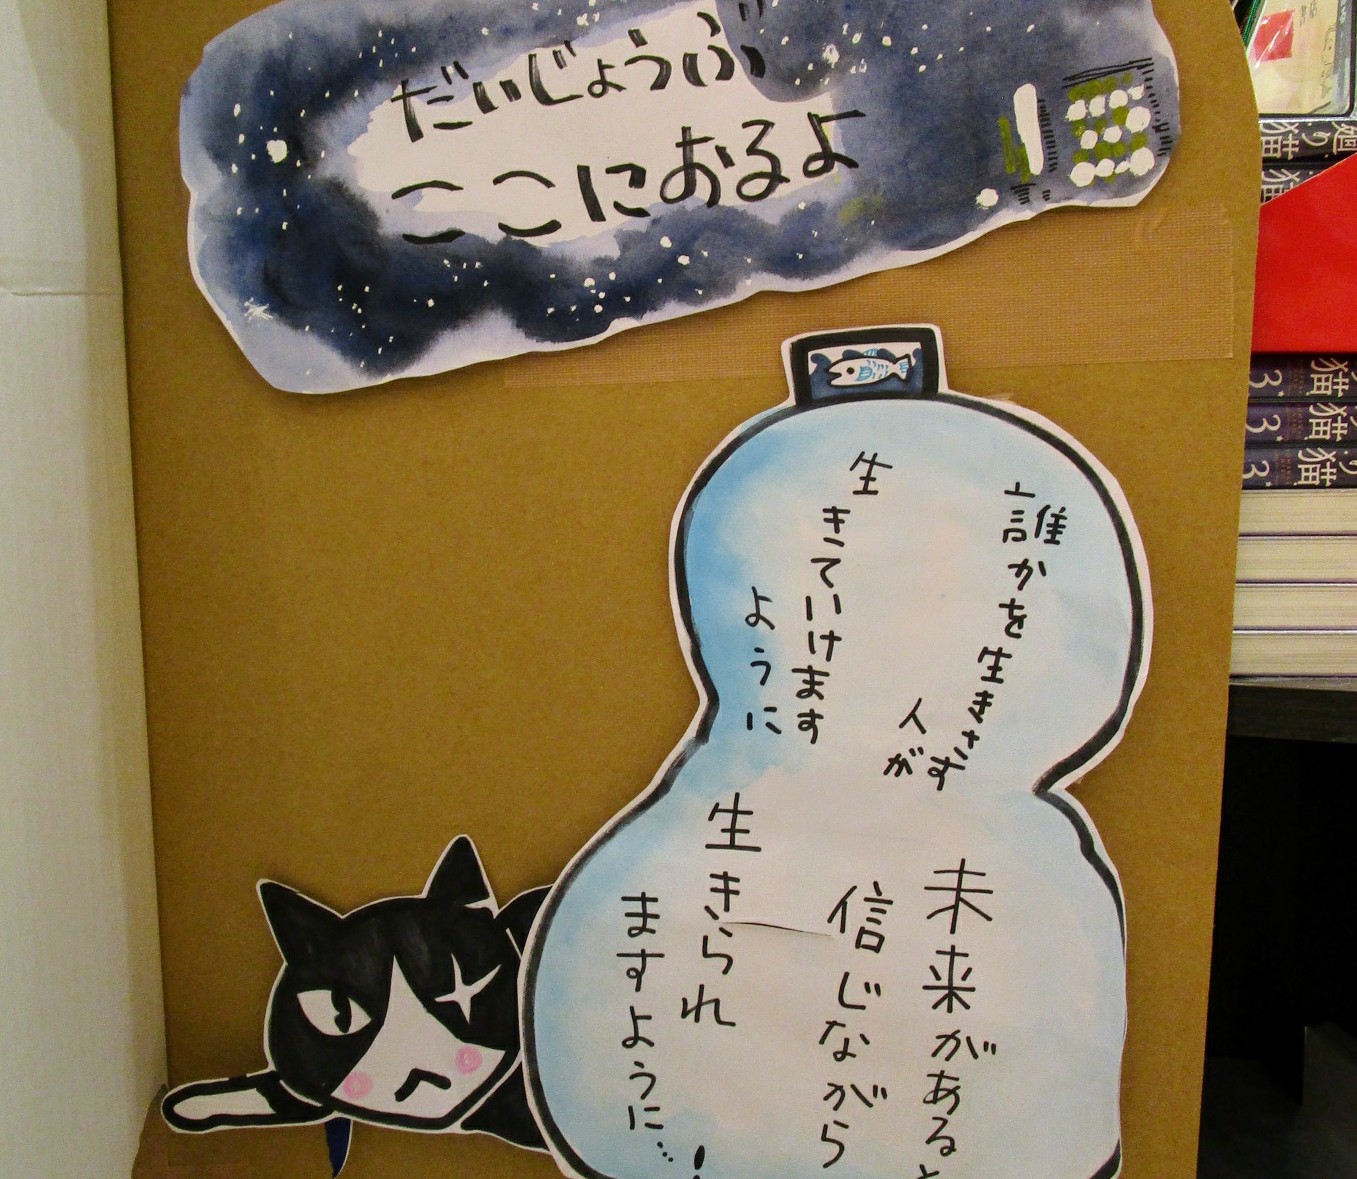 だいじょうぶ
ここにおるよ
誰かを生きさす
人が
生きていけます
ように
未来があると
信じながら
生きられ
ますように…!
廻り猫
猫
猫 3
り猫 3
り猫 3